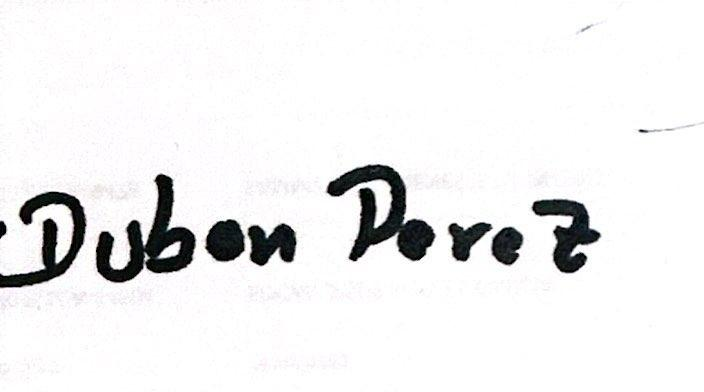 Duban Perez